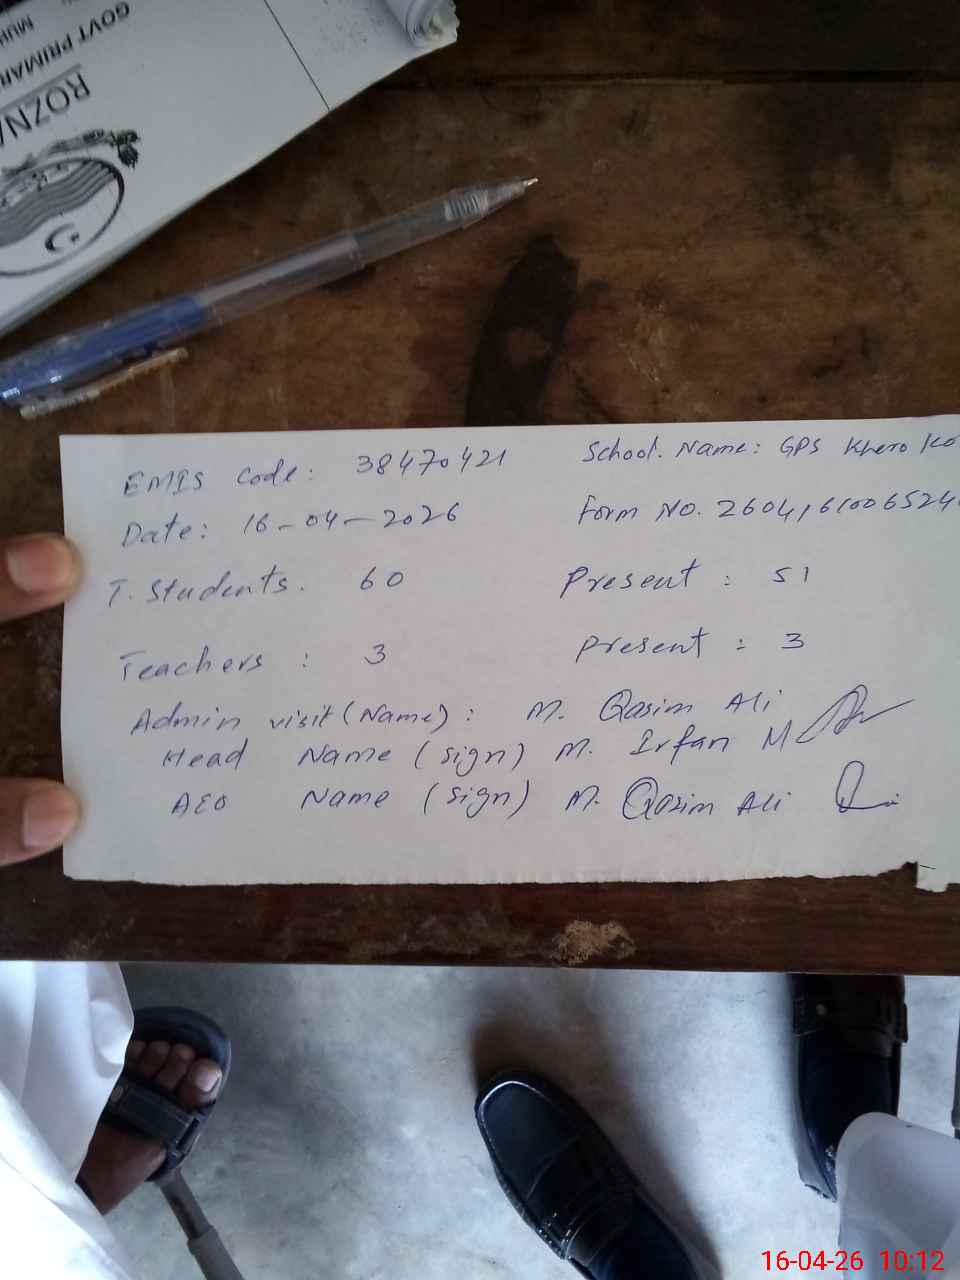 GOVT PRIMAR
ROZNA
EMIS Code: 38470421 School. Name: GPS Khero Ko
Date: 16-04-2026 Form No. 2604161006524
T. Students. 60 Present: 51
Teachers: 3 Present: 3
Admin visit (Name): M. Qasim Ali
Head Name (sign) M. Irfan
AEO Name (sign) M. Qasim Ali
16-04-26 10:12